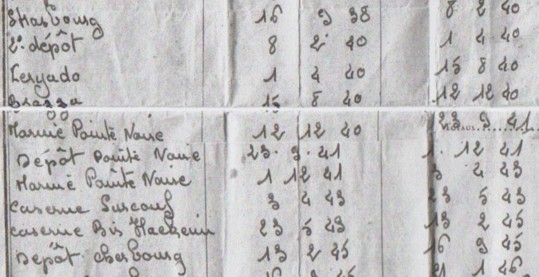 Strasbourg 16 9 38 8 2 40
2e dépôt 8 2 40 1 4 40
Keryado 1 4 40 15 8 40
Brazza 15 8 40 12 12 40
Marine Pointe Noire 12 12 40 23 9 41
Dépôt Pointe Noire 23 9 41 1 12 41
Marine Pointe Noire 1 12 41 3 4 43
Caserne Surcouf 3 4 43 23 5 43
Caserne Bir Hacheim 23 5 43 13 2 45
Dépôt Cherbourg 13 2 45 16 9 45
16 9 45 21 1 46